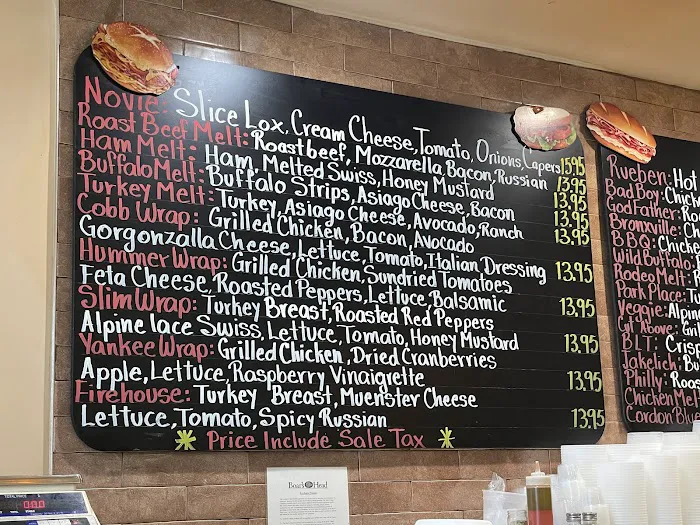 Novie: Slice Lox, Cream Cheese, Tomato, Onions, Capers 15.95
Roast Beef Melt: Roast beef, Mozzarella, Bacon, Russian 13.95
Ham Melt: Ham, Melted Swiss, Honey Mustard 13.95
Buffalo Melt: Buffalo Strips, Asiago Cheese, Bacon 13.95
Turkey Melt: Turkey, Asiago Cheese, Avocado, Ranch 13.95
Cobb Wrap: Grilled Chicken, Bacon, Avocado
Gorgonzalla Cheese, Lettuce, Tomato, Italian Dressing 13.95
Hummer Wrap: Grilled Chicken, Sundried Tomatoes
Feta Cheese, Roasted Peppers, Lettuce, Balsamic 13.95
Slim Wrap: Turkey Breast, Roasted Red Peppers
Alpine lace Swiss, Lettuce, Tomato, Honey Mustard 13.95
Yankee Wrap: Grilled Chicken, Dried Cranberries
Apple, Lettuce, Raspberry Vinaigrette 13.95
Firehouse: Turkey Breast, Muenster Cheese
Lettuce, Tomato, Spicy Russian 13.95
Price Include Sale Tax
Rueben: Hot
Bad Boy: Chick
God Father:
Bronxville: Ch
B B Q: Chicke
Wild Buffalo:
Rodeo Melt:
Park Place:
Veggie: Alpin
Cut Above: Gril
B L T: Crisp
Jakelich: Bu
Philly: Roas
Chicken Melt
Cordon Blue
Boar's Head
TOTAL PRICE
0.00